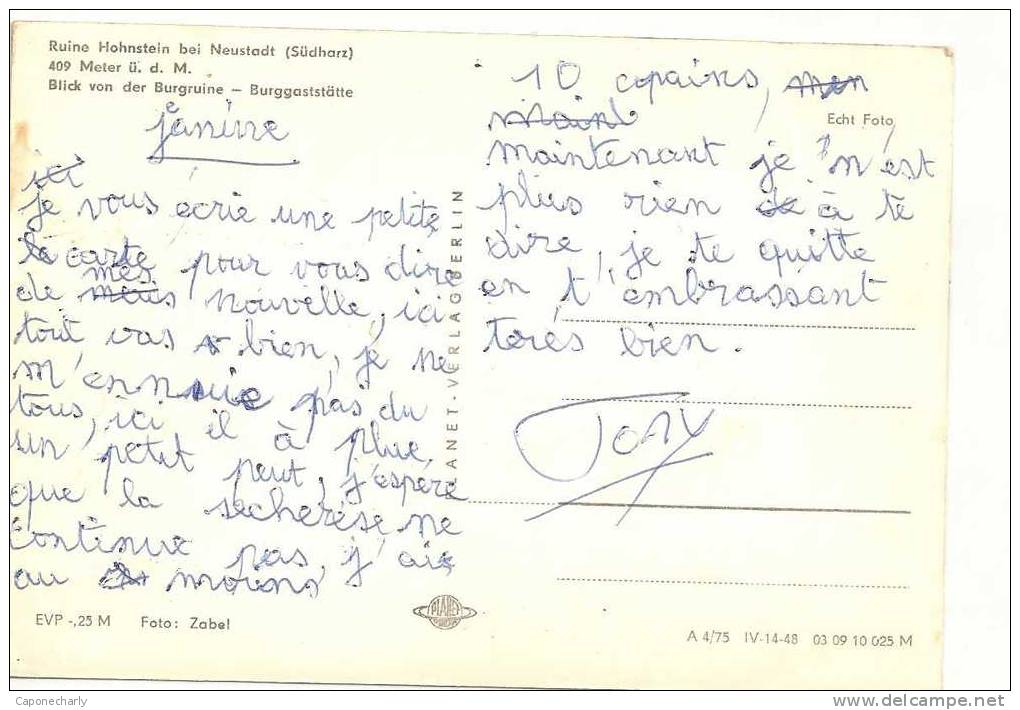 Ruine Hohnstein bei Neustadt (Südharz)
409 Meter ü. d. M.
Blick von der Burgruine – Burggaststätte
jeanine
je vous écrie une petite
carte pour vous dire
de mes nouvelle, ici
tout vas bien, je ne
m'ennuie pas du
tous, ici il à plue
un petit peut, j'espère
que la secherèse ne
continue pas, j'ais
au moins
10 copains, mon
maint
maintenant je n'est
plus rien à te
dire, je te quitte
en t'embrassant
torés bien.
Tony
Echt Foto
PLANET-VERLAG BERLIN
EVP -,25 M Foto: Zabel
PLANET
A 4/75 IV-14-48 03 09 10 025 M
Caponecharly
delcampe.net